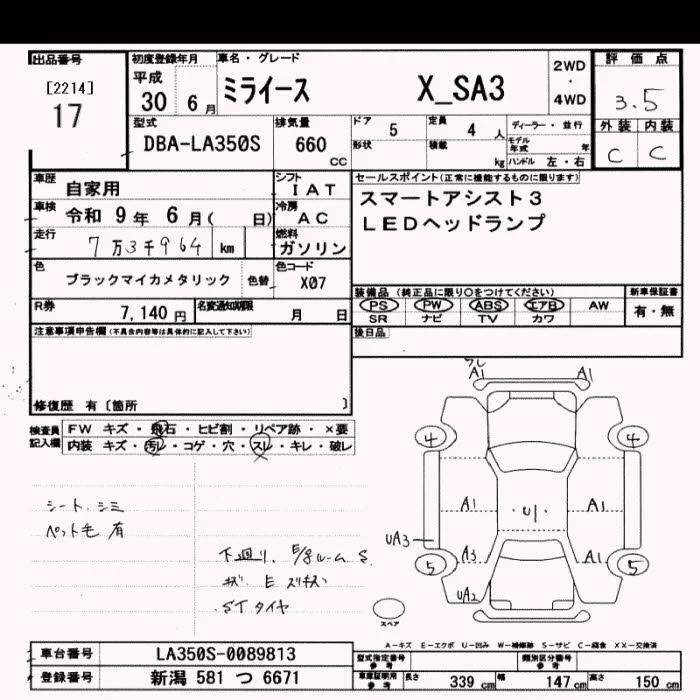 出品番号
[2214]
17
初度登録年月
平成
30 6 月
車名・グレード
ミライース X_SA3
2WD
・
4WD
評価点
3.5
外装 内装
C C
型式
DBA-LA350S
排気量
660
CC
ドア 5
定員 4 人
ディーラー・並行
形状
積載
kg
モデル年式 年
ハンドル 左・右
車歴 自家用
シフト IAT
車検 令和 9 年 6 月( 日)
冷房 AC
走行 7万3千964 km
燃料 ガソリン
色 ブラックマイカメタリック 色替
色コード X07
R券 7,140 円
名変通知期限 月 日
セールスポイント(正常に機能するものに限ります)
スマートアシスト3
LEDヘッドランプ
装備品(純正品に限り○をつけてください)
PS PW ABS エアB AW
SR ナビ TV カワ
新車保証書
有・無
後日品
注意事項申告欄(不具合内容等は具体的に記入して下さい)
修復歴 有〔箇所 〕
検査員
記入欄
FW キズ・飛石・ヒビ割・リペア跡・×要
内装 キズ・汚レ・コゲ・穴・スレ・キレ・破レ
シート、シミ
ペット毛 有
下廻り、E/gルーム S
キズ E
ST タイヤ
A1 A1
4 4
A1 U1 A1
UA3 A3 A1
5 5
UA2
スペア
A-キズ E-エクボ U-凹み W-補修跡 S-サビ C-腐食 XX-交換済
車台番号 LA350S-0089813
登録番号 新潟 581 つ 6671
型式指定番号
参考
類別区分番号
参考
車庫証明用
参考
長さ 339 cm 幅 147 cm 高さ 150 cm